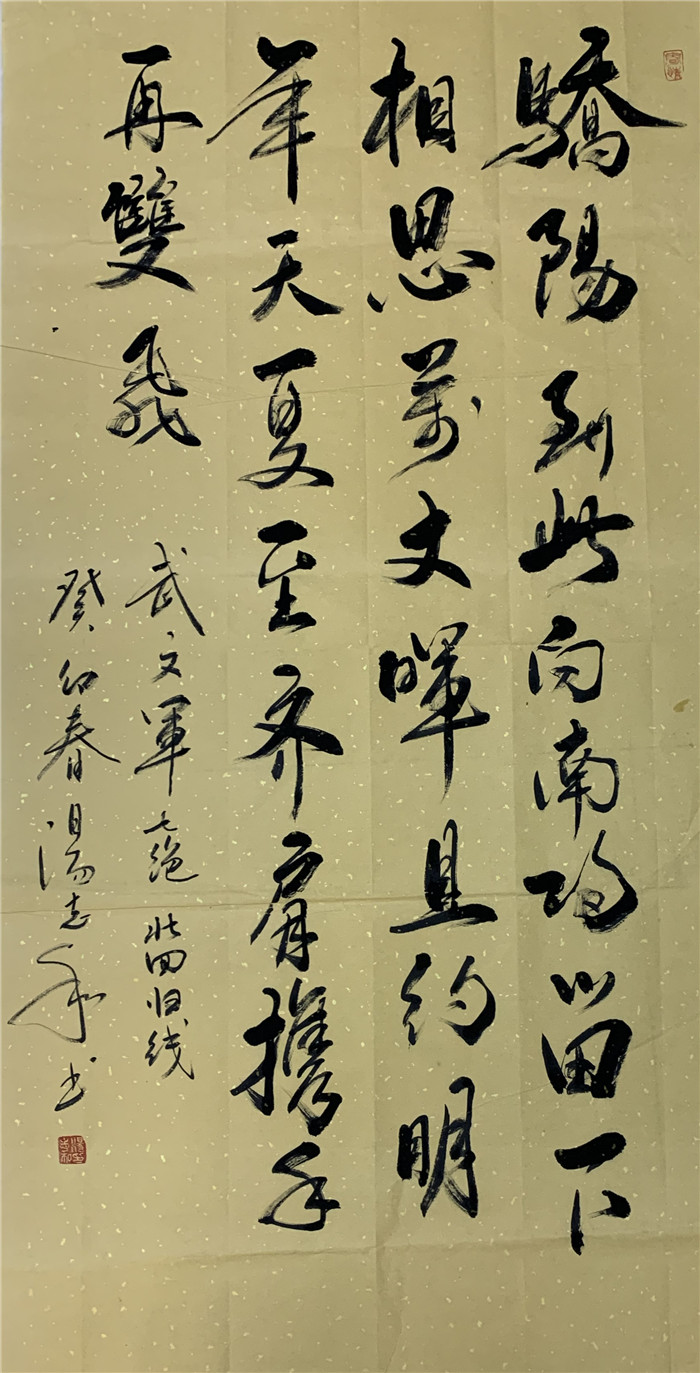 驕陽到此向南歸留下
相思萬丈暉且約明
年天夏至齐肩攜手
再雙飛
武文軍七绝 北回归线
癸卯春湯志和书